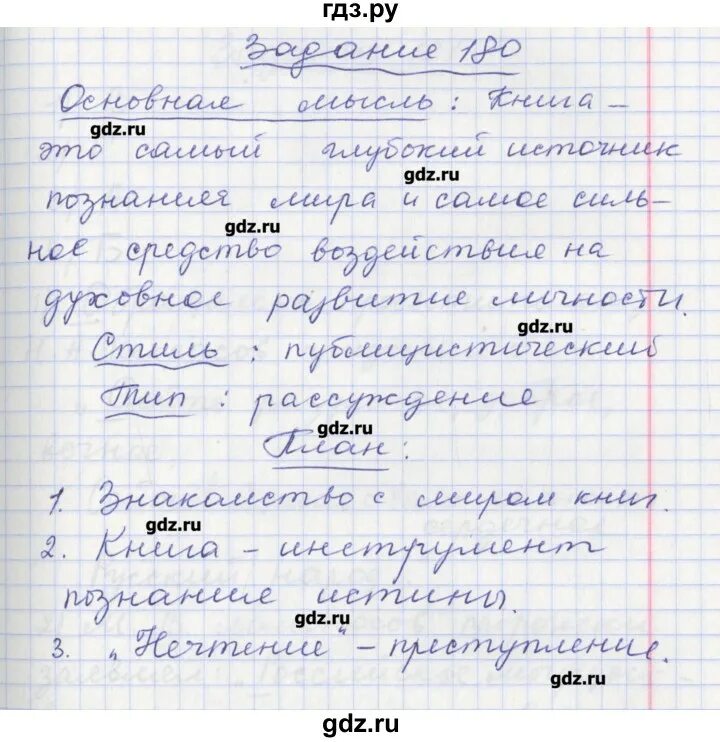 гдз.ру
Задание 180
Основная мысль: Книга –
gdz.ru
это самый глубокий источник
gdz.ru
познания мира и самое силь-
gdz.ru
ное средство воздействия на
духовное развитие личности.
gdz.ru
Стиль: публицистический
Тип: рассуждение
gdz.ru
План:
1. Знакомство с миром книг.
gdz.ru
2. Книга – инструмент
познание истины.
gdz.ru
3. „Нечтение“ – преступление.
gdz.ru
gdz.ru